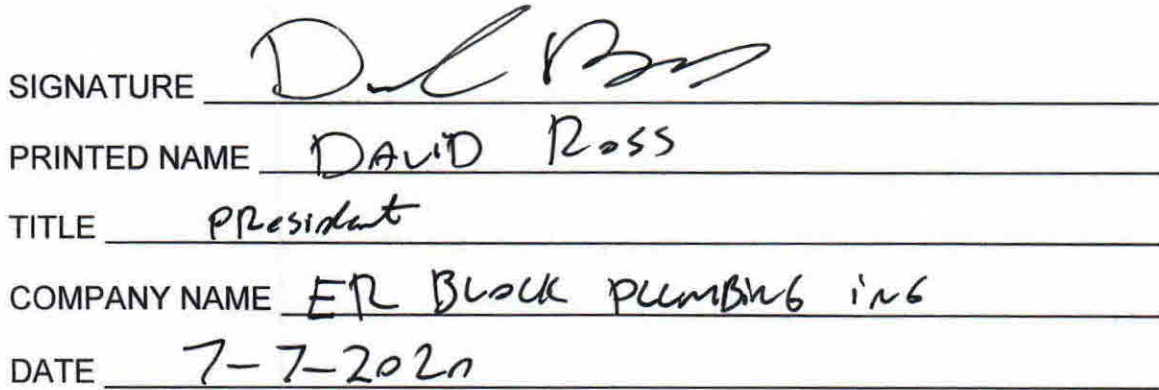 SIGNATURE
PRINTED NAME DAViD Ross
TITLE President
COMPANY NAME ER BLOCK PLUMBING inc
DATE 7-7-2020